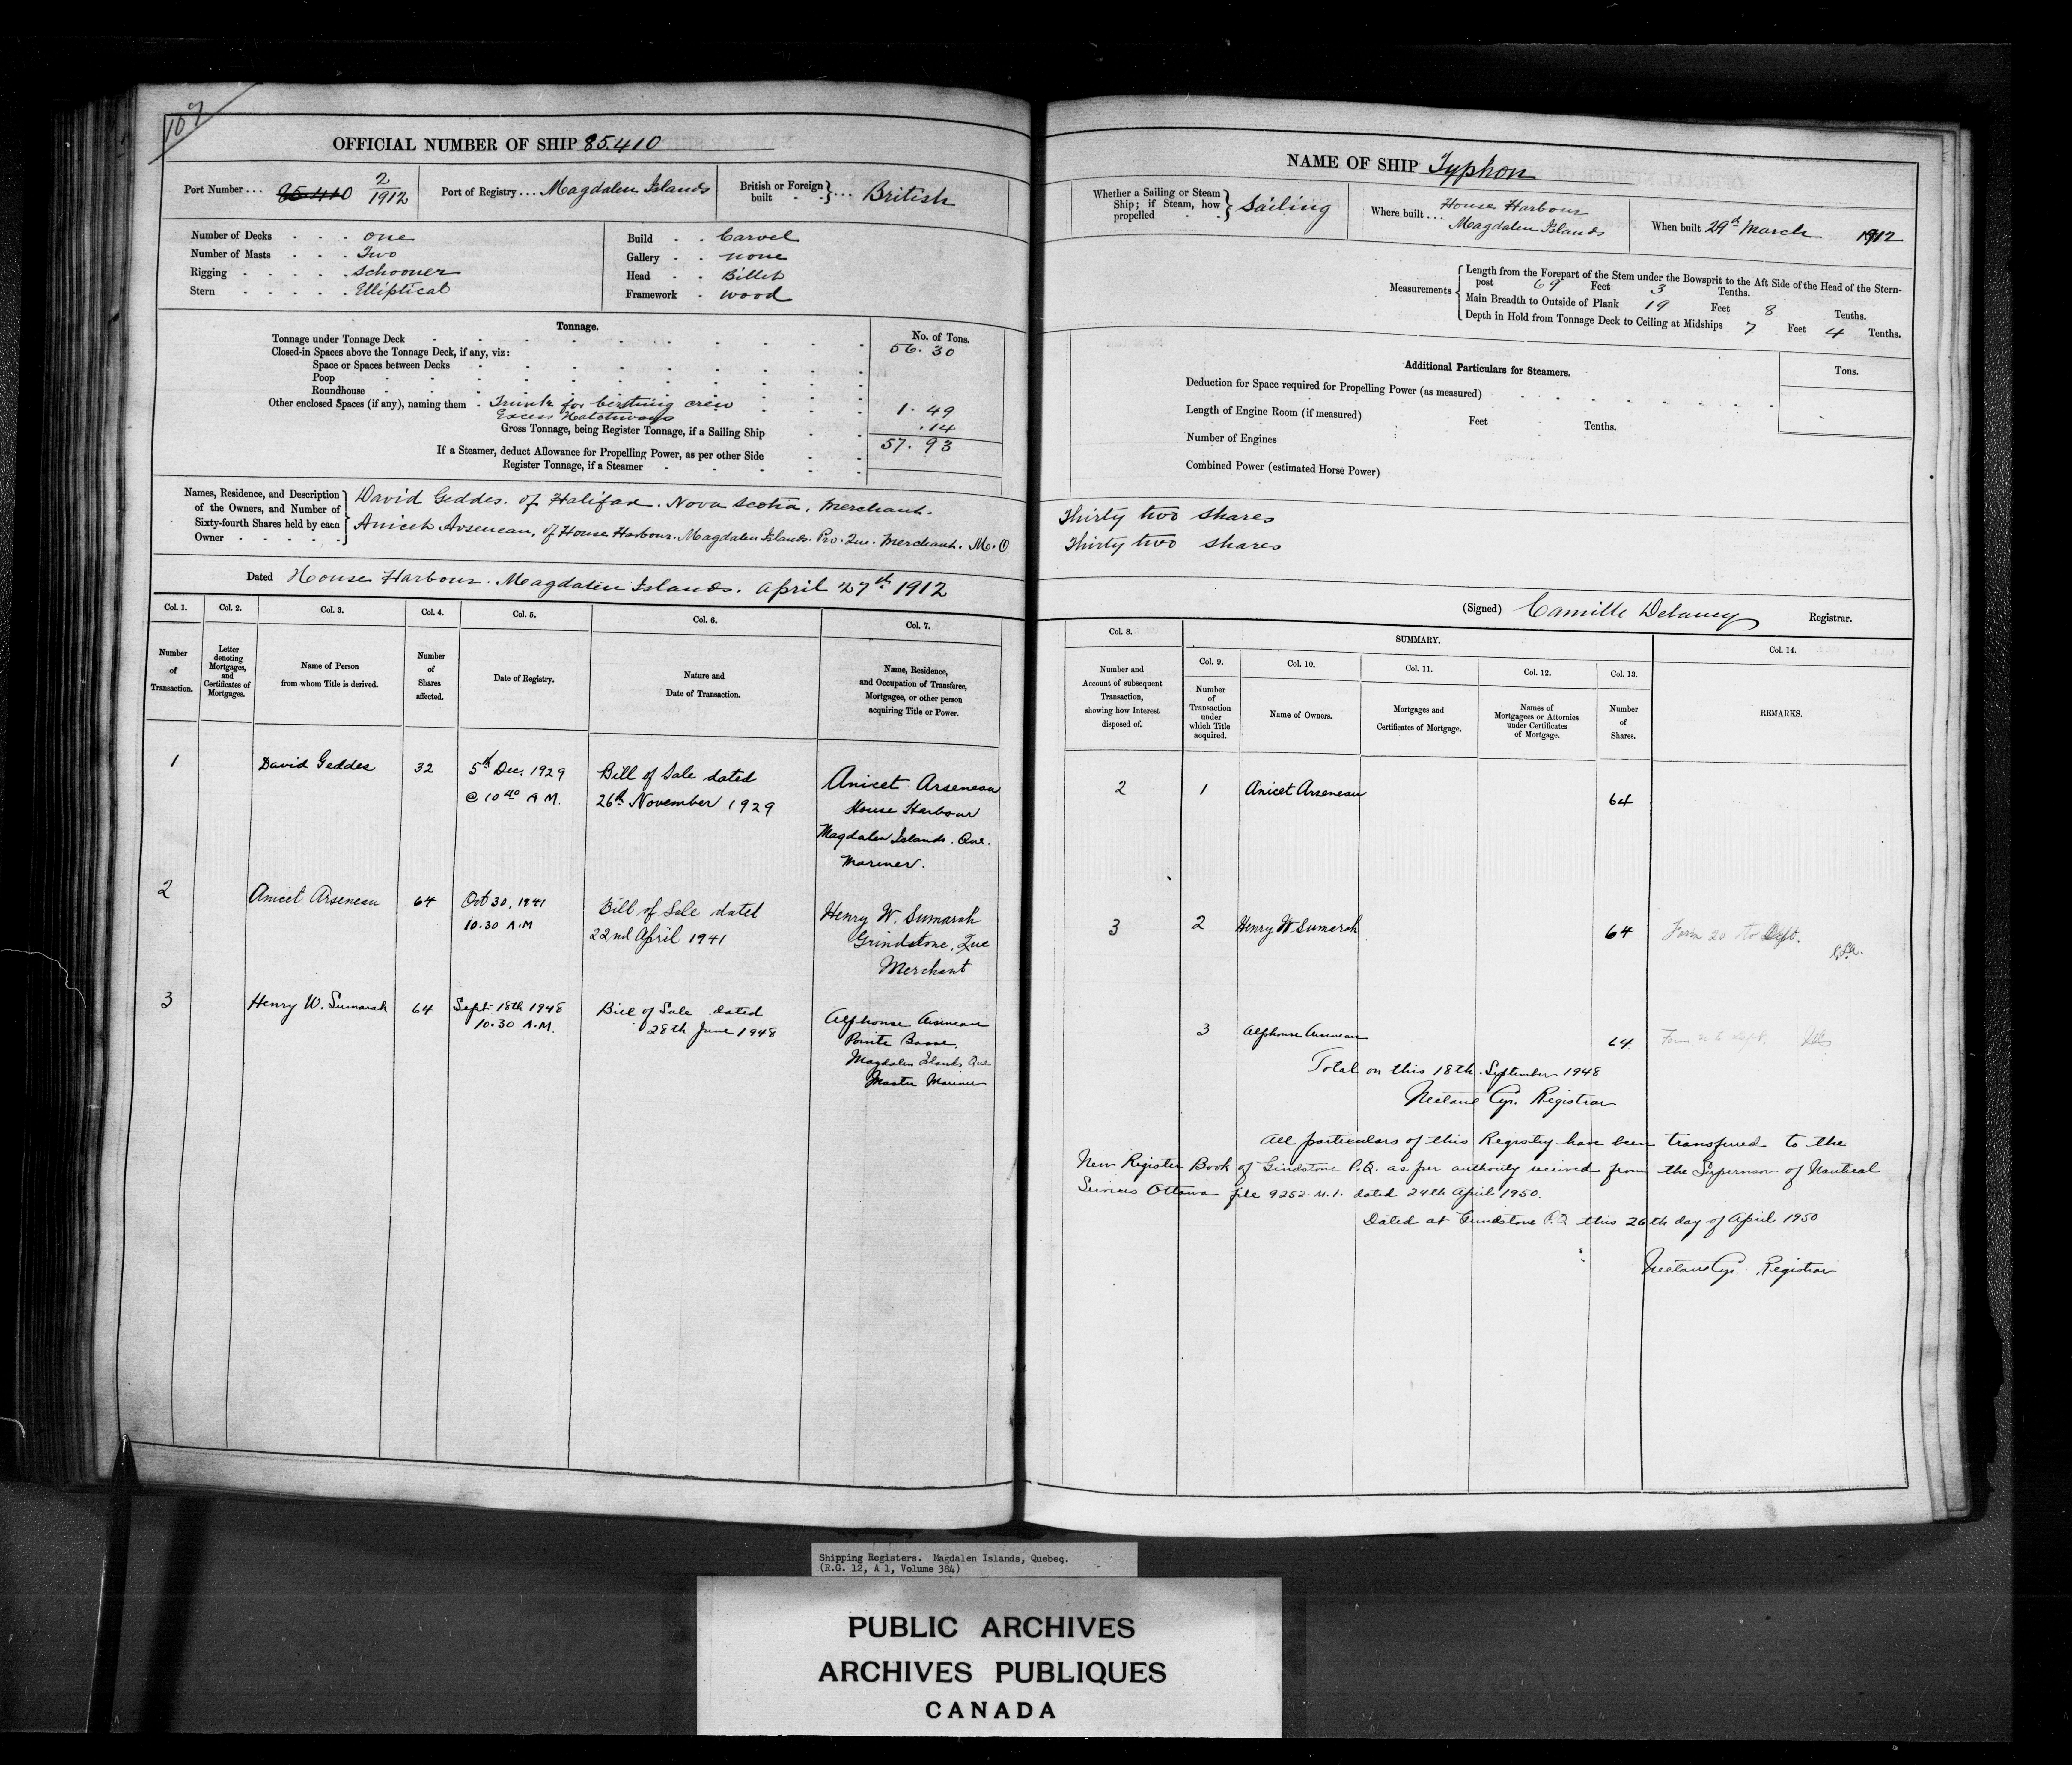 107
OFFICIAL NUMBER OF SHIP 85.410
Port Number... 85410 2/1912
Port of Registry... Magdalen Islands
British or Foreign built ... British
Number of Decks one
Number of Masts Two
Rigging schooner
Stern Elliptical
Build Carvel
Gallery none
Head Billet
Framework wood
Tonnage.
No. of Tons.
Tonnage under Tonnage Deck 56.30
Closed-in Spaces above the Tonnage Deck, if any, viz:
Space or Spaces between Decks
Poop
Roundhouse
Other enclosed Spaces (if any), naming them Trunk for berthing crew 1.49
Excess Hatchways .14
Gross Tonnage, being Register Tonnage, if a Sailing Ship 57.93
If a Steamer, deduct Allowance for Propelling Power, as per other Side
Register Tonnage, if a Steamer
Names, Residence, and Description of the Owners, and Number of Sixty-fourth Shares held by each Owner
David Geddes. of Halifax. Nova Scotia. Merchant.
Anicet Arseneau, of House Harbour. Magdalen Islands. Pro. Que. Merchant. M.O.
Dated House Harbour. Magdalen Islands. April 27th 1912
Col. 1. Col. 2. Col. 3. Col. 4. Col. 5. Col. 6. Col. 7.
Number of Transaction.
Letter denoting Mortgages, and Certificates of Mortgages.
Name of Person from whom Title is derived.
Number of Shares affected.
Date of Registry.
Nature and Date of Transaction.
Name, Residence, and Occupation of Transferee, Mortgagee, or other person acquiring Title or Power.
1 David Geddes 32 5th Dec. 1929 Bill of Sale dated Anicet Arseneau
@ 10 40 A.M. 26th November 1929 House Harbour
Magdalen Islands. Que.
Mariner.
2 Anicet Arseneau 64 Oct 30, 1941 Bill of Sale dated Henry W. Sumarah
10.30 A.M 22nd April 1941 Grindstone, Que
Merchant
3 Henry W. Sumarah 64 Sept 18th 1948 Bill of Sale dated Alphonse Arseneau
10.30 A.M. 28th June 1948 Pointe Basse,
Magdalen Islands Que
Master Mariner
NAME OF SHIP Typhon
Whether a Sailing or Steam Ship; if Steam, how propelled Sailing
Where built... House Harbour
Magdalen Islands
When built 29th March 1912
Measurements
Length from the Forepart of the Stem under the Bowsprit to the Aft Side of the Head of the Stern-
post 69 Feet 3 Tenths.
Main Breadth to Outside of Plank 19 Feet 8 Tenths.
Depth in Hold from Tonnage Deck to Ceiling at Midships 7 Feet 4 Tenths.
Additional Particulars for Steamers.
Tons.
Deduction for Space required for Propelling Power (as measured)
Length of Engine Room (if measured) Feet Tenths.
Number of Engines
Combined Power (estimated Horse Power)
Thirty two shares
Thirty two shares
(Signed) Camille Delaney Registrar.
Col. 8.
SUMMARY.
Col. 9. Col. 10. Col. 11. Col. 12. Col. 13. Col. 14.
Number and Account of subsequent Transaction, showing how Interest disposed of.
Number of Transaction under which Title acquired.
Name of Owners.
Mortgages and Certificates of Mortgage.
Names of Mortgagees or Attornies under Certificates of Mortgage.
Number of Shares.
REMARKS.
2 1 Anicet Arseneau 64
3 2 Henry W. Sumarah 64 Form 20 to Dept.
3 Alphonse Arseneau 64. Form to Dept.
Total on this 18th. September 1948
Cyr. Registrar
All particulars of this Registry have been transfered to the
New Register Book of Grindstone P.Q. as per authority received from the Supervisor of Nautical
Services Ottawa file 9252-M.1. dated 24th April 1950.
Dated at Grindstone P.Q this 26th day of April 1950
Cyr. Registrar
Shipping Registers. Magdalen Islands, Quebec.
(R.G. 12, A 1, Volume 384)
PUBLIC ARCHIVES
ARCHIVES PUBLIQUES
CANADA